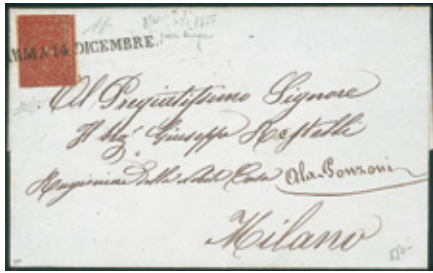 ARMA 14 DICEMBRE.
Al Pregiatissimo Signore
Il Sig.r Giuseppe Restelli
Ragioniere della Nobile Casa Ala-Ponzoni
Milano